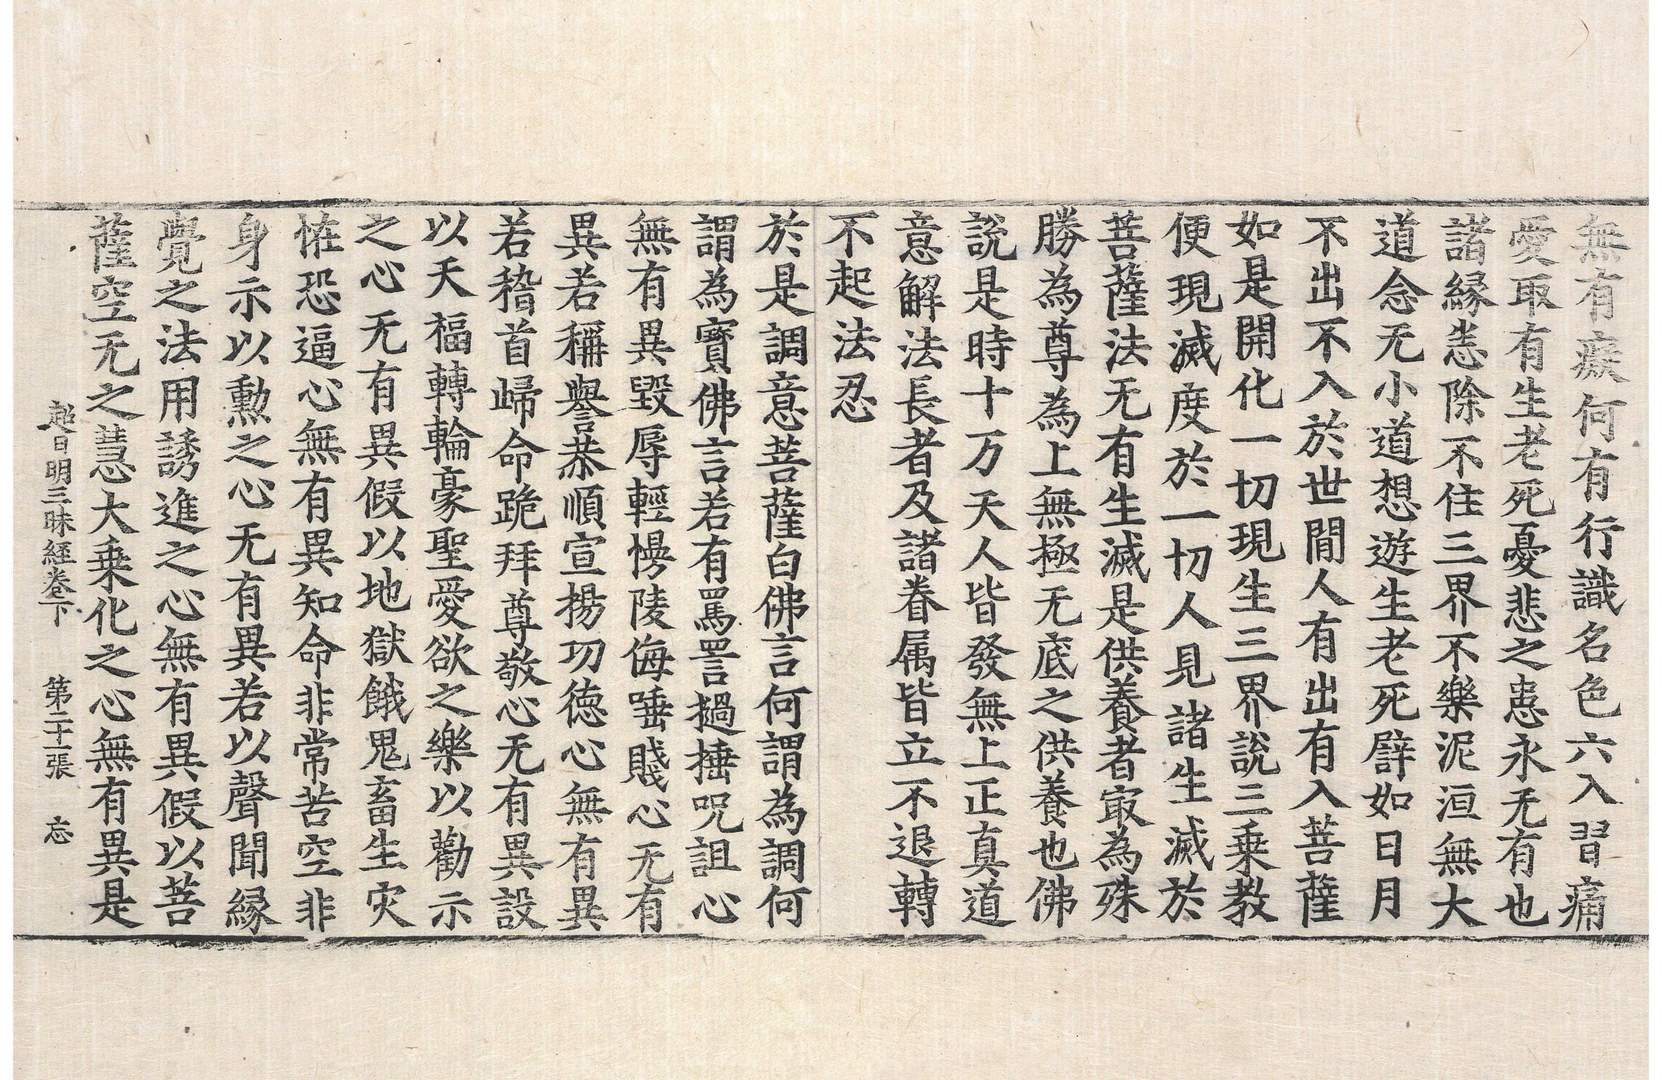 無有癡何有行識名色六入習痛
愛取有生老死憂悲之患永无有也
諸縁恚除不住三界不樂泥洹無大
道念无小道想遊生老死譬如日月
不出不入於世間人有出有入菩薩
如是開化一切現生三界說三乗教
便現滅度於一切人見諸生滅於
菩薩法无有生滅是供養者㝡為殊
勝為尊為上無極无底之供養也佛
說是時十万天人皆發無上正真道
意解法長者及諸眷属皆立不退轉
不起法忍
於是調意菩薩白佛言何謂為調何
謂為寳佛言若有罵詈撾捶呪詛心
無有異毀辱輕慢陵侮唾賤心无有
異若稱譽恭順宣揚功徳心無有異
若稽首歸命跪拜尊敬心无有異設
以天福轉輪豪聖愛欲之樂以勸示
之心无有異假以地獄餓鬼畜生灾
恠恐逼心無有異知命非常苦空非
身示以勲之心无有異若以聲聞縁
覺之法用誘進之心無有異假以菩
薩空无之慧大乗化之心無有異是
超日明三昧經卷下　第二十一張　忘